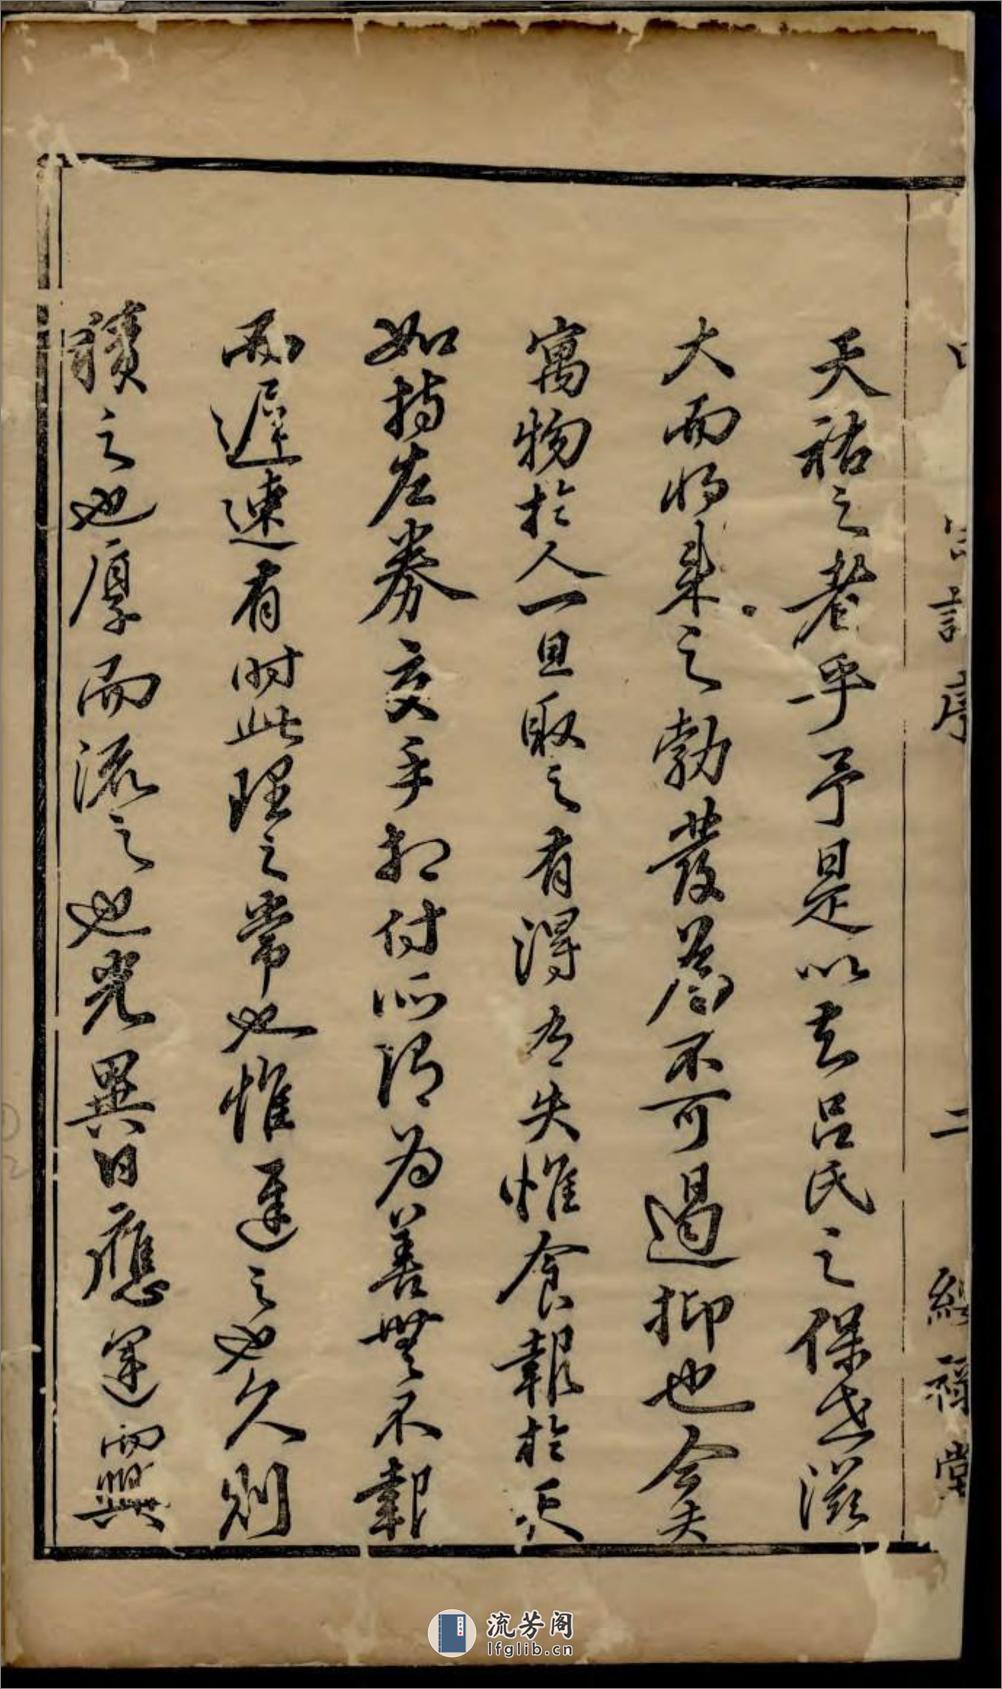 天祐之者乎予是以知呂氏之保世滋
大而將來之勃發為不可遏抑也今夫
寓物於人一旦取之有得有失惟食報於天
如持左券交手相付所謂為善無不報
而遲速有時此理之常也惟遲之也久則
積之也厚而流之也光異日應運而興
序
二
堂
流芳阁
lfglib.cn